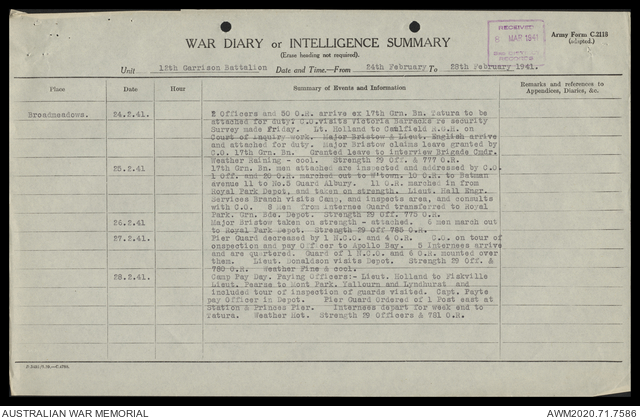 RECEIVED
8 MAR 1941
RECORDS
Army Form C.2118
(adapted.)
WAR DIARY or INTELLIGENCE SUMMARY
(Erase heading not required).
Unit 12th Garrison Battalion Date and Time.—From 24th February To 28th February 1941.
Place Date Hour Summary of Events and Information Remarks and references to
Appendices, Diaries, &c.
Broadmeadows. 24.2.41. 2 Officers and 50 O.R. arrive ex 17th Grn. Bn. Tatura to be
attached for duty. C.O.visits Victoria Barracks re security
Survey made Friday. Lt. Holland to Caulfield R.G.H. on
Court of Inquiry work. Major Bristow & Lieut. English arrive
and attached for duty. Major Bristow claims leave granted by
C.O. 17th Grn. Bn. Granted leave to interview Brigade Cmdr.
Weather Raining - cool. Strength 29 Off. & 777 O.R.
25.2.41. 17th Grn. Bn. men attached are inspected and addressed by C.O.
1 Off. and 20 O.R. marched out to W'town. 10 O.R. to Batman
avenue 11 to No.5 Guard Albury. 11 O.R. marched in from
Royal Park Depot, and taken on strength. Lieut. Hall Engr.
Services Branch visits Camp, and inspects area, and consults
with C.O. 8 Men from Internee Guard transferred to Royal
Park. Grn. Bde. Depot. Strength 29 Off. 775 O.R.
26.2.41 Major Bristow taken on strength - attached. 6 men march out
to Royal Park Depot. Strength 29 Off 785 O.R.
27.2.41. Pier Guard decreased by 1 N.C.O. and 4 O.R. C.O. on tour of
onspection and pay Officer to Apollo Bay. 5 Internees arrive
and are quartered. Guard of 1 N.C.O. and 6 O.R. mounted over
them. Lieut. Donaldson visits Depot. Strength 29 Off. &
780 O.R. Weather Fine & cool.
28.2.41. Camp Pay Day. Paying Officers:- Lieut. Holland to Fiskville
Lieut. Pearse to Mont Park. Yallourn and Lyndhurst and
included tour of inspection of guards visited. Capt. Fayte
pay Officer in Depot. Pier Guard Ordered of 1 Post east at
Station & Princes Pier. Internees depart for week end to
Tatura. Weather Hot. Strength 29 Officers & 781 O.R.
AUSTRALIAN WAR MEMORIAL
AWM2020.71.7586